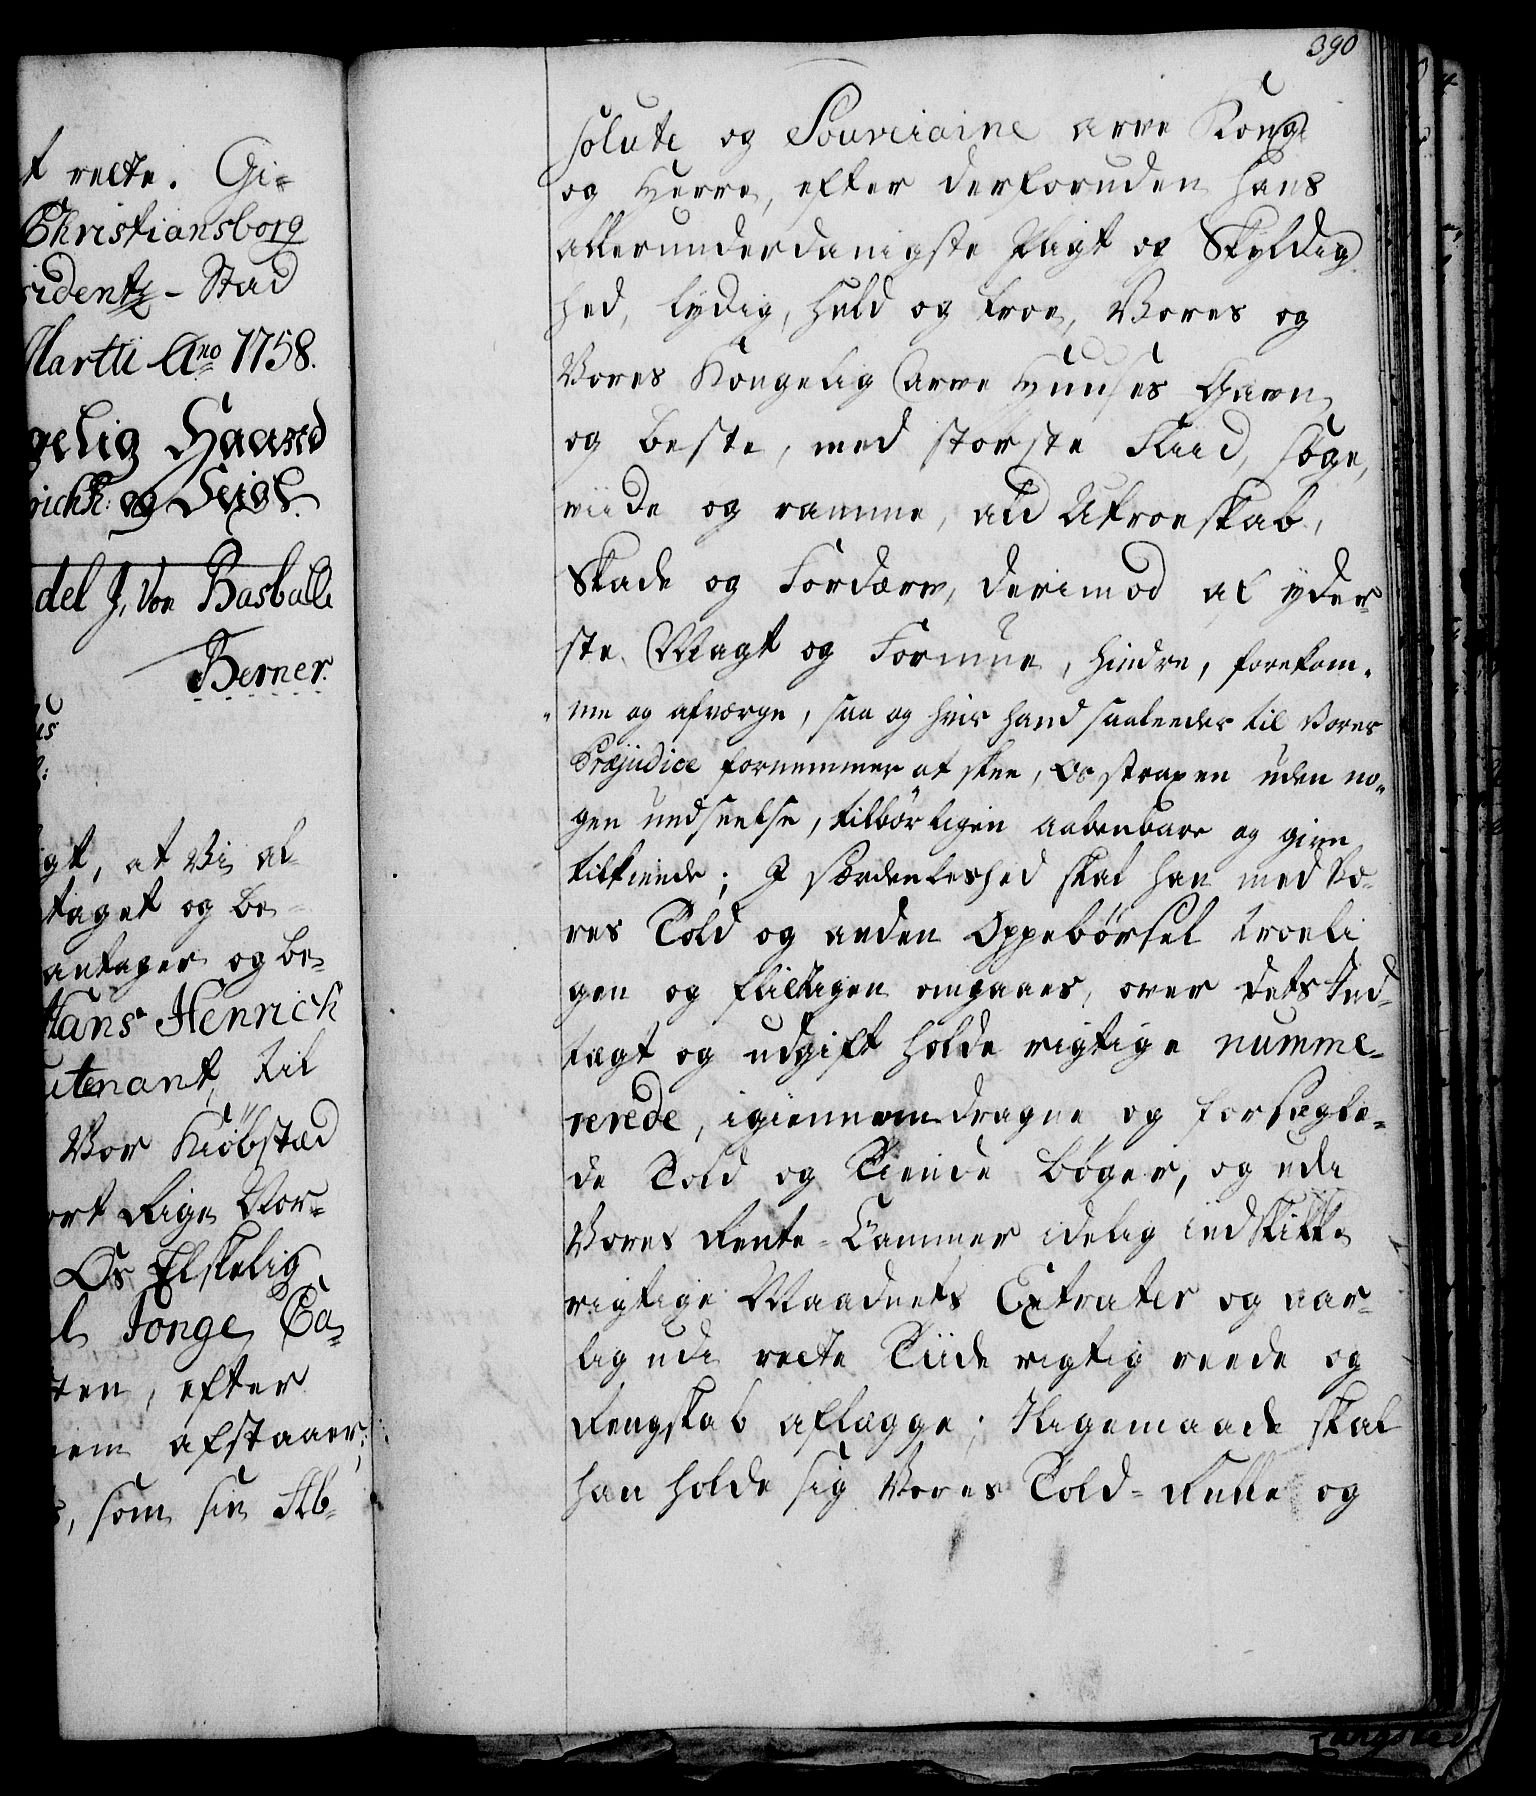 t recte. Gi-
Christiansborg
sidentz-Stad
Martii Ao 1758.
gelig Haand
og Seigl.
del J, von Basballe
Berner.
igt, at Vi af
taget og be-
antager og be-
Hans Henrich
utenant, til
Vor Kiøbstæd
ort Rige Nor-
Os Elskelig
Tonge, Ca-
ten, efter
afstaaer;
, som sin Ab-
390
solute og Souveraine arve Konge
og Herre, efter derforuden hans
allerunderdanigste Pligt og Skyldig
hed, lydig, huld og troe, Vores og
Vores Kongelig arve Huuses Gavn
og beste, med største Fliid, søge,
viide og ramme, ald Utroeskab,
Skade og Fordærv, derimod af yder-
ste Magt og Formue, hindre, forekom-
me og afværge, saa og hvis hand saaleedes til Vores
Præjudice fornemmer at skee, Os straxen uden no-
gen undseelse, tilbørligen aabenbare og give
tilkiende; I særdeleshed skal han med Vo-
res Told og anden Oppebørsel troeli
gen og flittigen omgaaes, over dets Ind-
tægt og udgift holde rigtige numme-
rerede, igiennemdragne og forsegle-
de Told og Tiende bøger, og udi
Vores Rente-Cammer idelig indskikke
rigtige Maanets Extracter og aar-
lig udi recte Tiide rigtig reede og
Rengskab aflægge; Iligemaade skal
han holde sig Vores Told-Rulle og